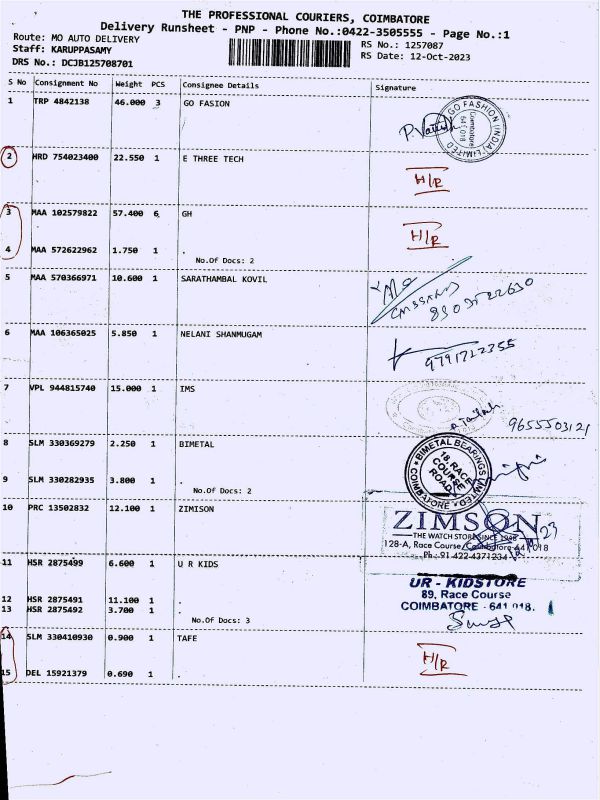 THE PROFESSIONAL COURIERS, COIMBATORE
Delivery Runsheet - PNP - Phone No.:0422-3505555 - Page No.:1
Route: MO AUTO DELIVERY
RS No.: 1257087
Staff: KARUPPASAMY
RS Date: 12-Oct-2023
DRS No.: DCJB125708701
S No Consignment No Weight PCS Consignee Details Signature
1 TRP 4842138 46.000 3 GO FASION
GO FASHION (INDIA) LIMITED
Coimbatore
641 018
2 HRD 754023400 22.550 1 E THREE TECH
H/R
3 MAA 102579822 57.400 6 GH
H/R
4 MAA 572622962 1.750 1 .
No.Of Docs: 2
5 MAA 570366971 10.600 1 SARATHAMBAL KOVIL
6 MAA 106365025 5.850 1 NELANI SHANMUGAM
9791722355
7 VPL 944815740 15.000 1 IMS
9655503121
8 SLM 330369279 2.250 1 BIMETAL
BIMETAL BEARINGS LIMITED
18, RACE
COURSE
ROAD
COIMBATORE
9 SLM 330282935 3.800 1 .
No.Of Docs: 2
10 PRC 13502832 12.100 1 ZIMISON
ZIMSON
THE WATCH STORE SINCE 1948
128-A, Race Course, Coimbatore-641 018
Ph.: 91-422-4371234
11 HSR 2875499 6.600 1 U R KIDS
UR - KIDSTORE
89, Race Course
COIMBATORE - 641 018.
12 HSR 2875491 11.100 1 .
13 HSR 2875492 3.700 1 .
No.Of Docs: 3
14 SLM 330410930 0.900 1 TAFE
H/R
15 DEL 15921379 0.690 1 .